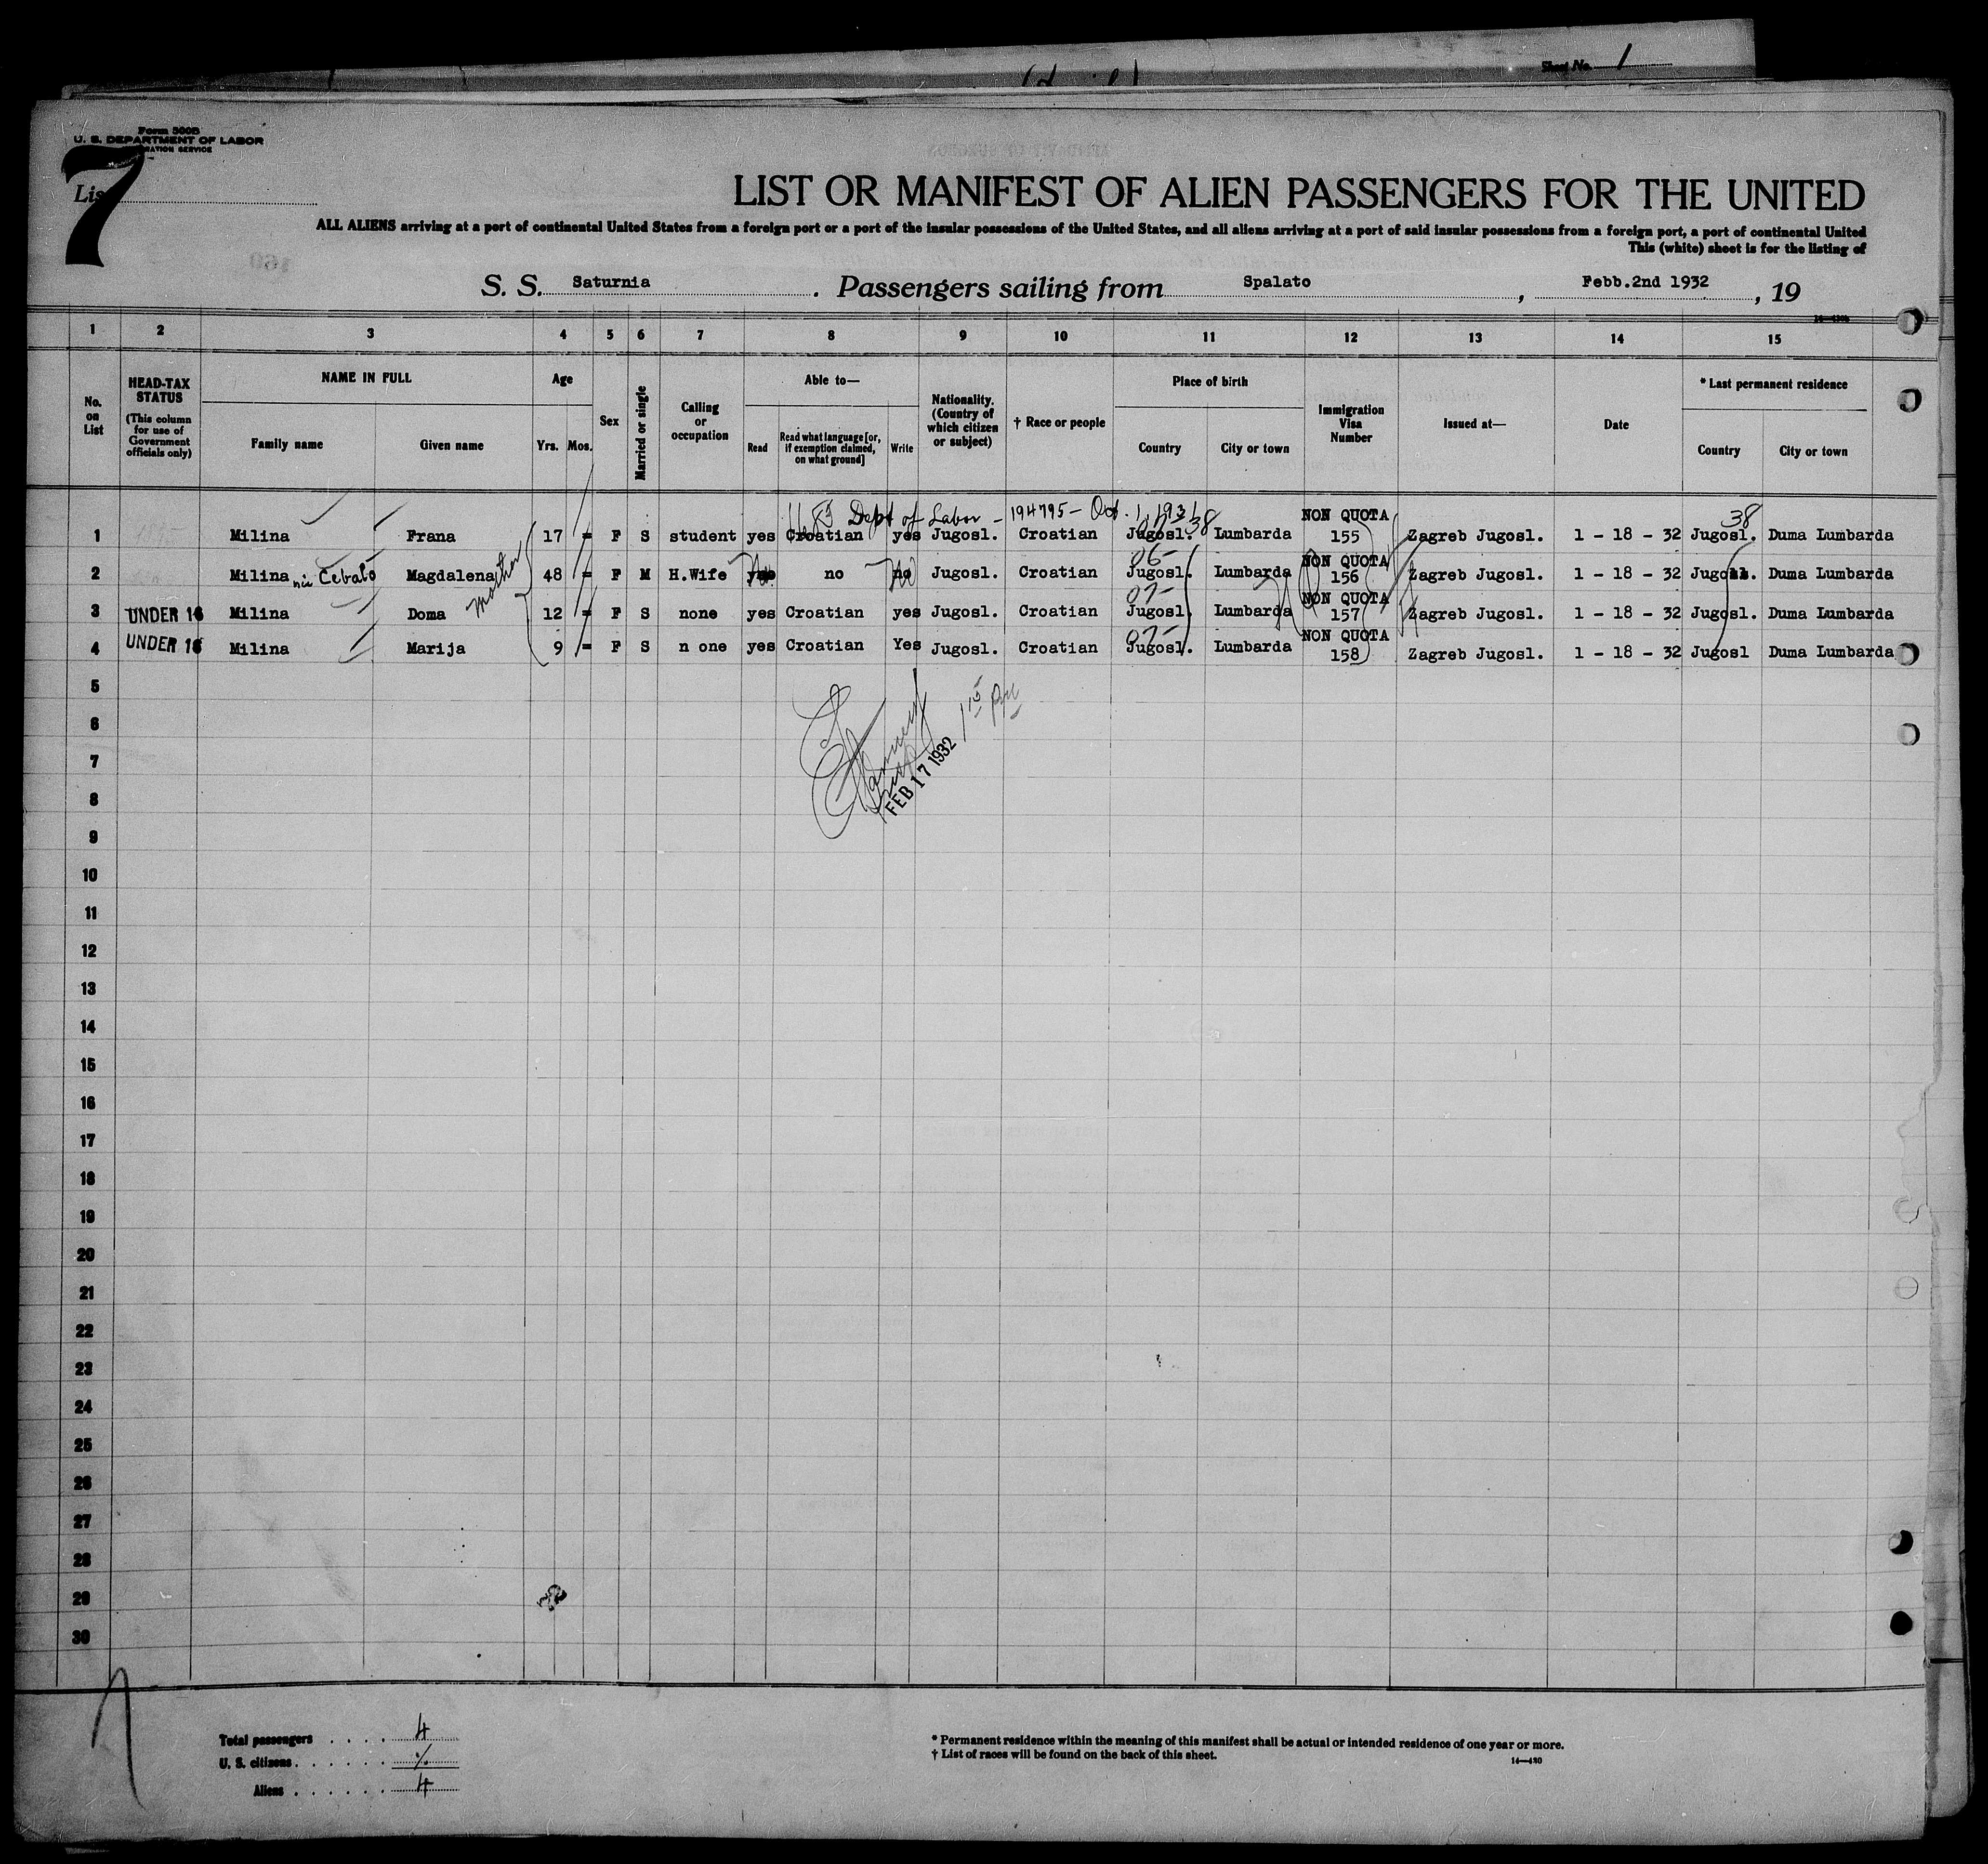 Sheet No. 1
Form 500B
U. S. DEPARTMENT OF LABOR
RATION SERVICE
7
Lis
LIST OR MANIFEST OF ALIEN PASSENGERS FOR THE UNITED
ALL ALIENS arriving at a port of continental United States from a foreign port or a port of the insular possessions of the United States, and all aliens arriving at a port of said insular possessions from a foreign port, a port of continental United
This (white) sheet is for the listing of
S. S. Saturnia. Passengers sailing from Spalato, Febb.2nd 1932, 19
1 2 3 4 5 6 7 8 9 10 11 12 13 14 15
No. on List
HEAD-TAX STATUS (This column for use of Government officials only)
NAME IN FULL
Family name Given name
Age
Yrs. Mos.
Sex
Married or single
Calling or occupation
Able to—
Read Read what language [or, if exemption claimed, on what ground] Write
Nationality. (Country of which citizen or subject)
† Race or people
Place of birth
Country City or town
Immigration Visa Number
Issued at—
Date
* Last permanent residence
Country City or town
Dept of Labor - 194795 - Oct. 1, 1931
38 38
1 Milina Frana 17 = F S student yes Croatian yes Jugosl. Croatian Jugosl. Lumbarda NON QUOTA 155 Zagreb Jugosl. 1 - 18 - 32 Jugosl. Duma Lumbarda
2 Milina Cebalo Magdalena Mother 48 = F M H.Wife no no Jugosl. Croatian 06- Jugosl. Lumbarda NON QUOTA 156 Zagreb Jugosl. 1 - 18 - 32 Duma Lumbarda
3 UNDER 16 Milina Doma 12 = F S none yes Croatian yes Jugosl. Croatian 07- Jugosl. Lumbarda NON QUOTA 157 Zagreb Jugosl. 1 - 18 - 32 Jugosl. Duma Lumbarda
4 UNDER 16 Milina Marija 9 = F S n one yes Croatian Yes Jugosl. Croatian 07- Jugosl. Lumbarda NON QUOTA 158 Zagreb Jugosl. 1 - 18 - 32 Jugosl Duma Lumbarda
5
6
7
FEB 17 1932
8
9
10
11
12
13
14
15
16
17
18
19
20
21
22
23
24
25
26
27
28
29
30
Total passengers . . . . 4
U. S. citizens . . . . . . %
Aliens . . . . . . 4
* Permanent residence within the meaning of this manifest shall be actual or intended residence of one year or more.
† List of races will be found on the back of this sheet.
14—430